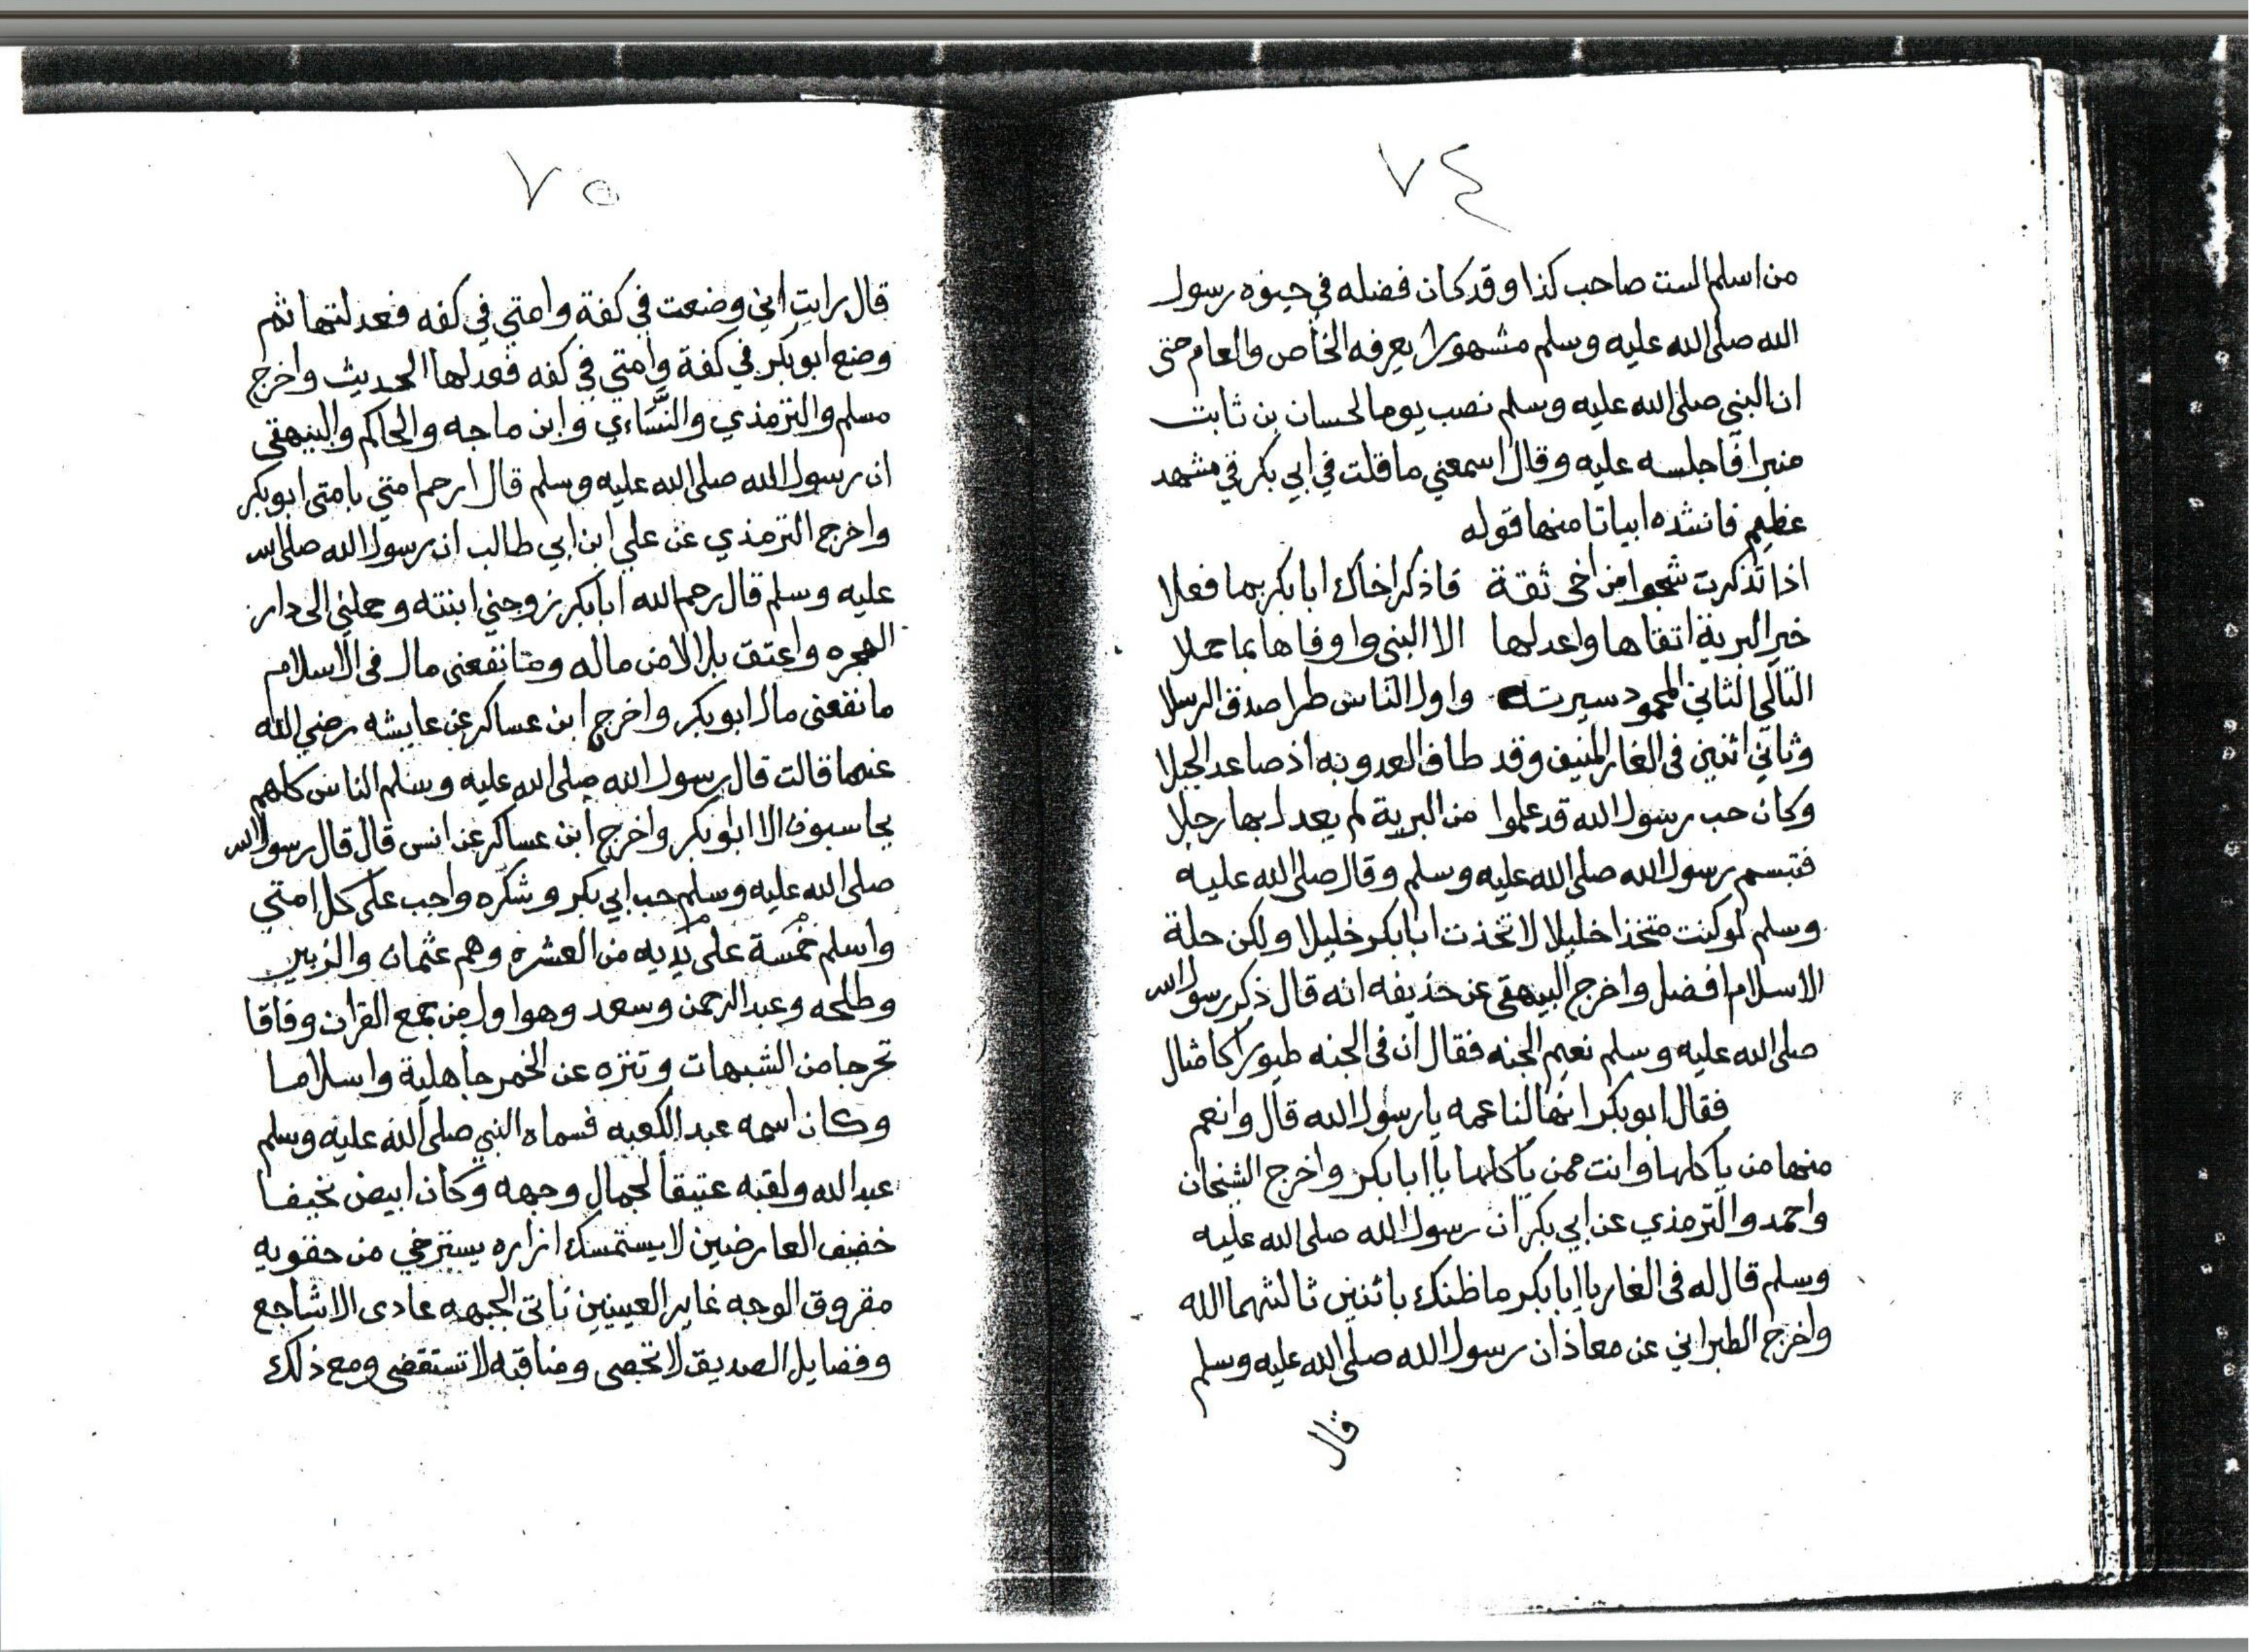 ٧٤
من اسلم الست صاحب كذا وقد كان فضله في حيوه رسول
الله صلى الله عليه وسلم مشهورا يعرفه الخاص والعام حتى
ان النبي صلى الله عليه وسلم نصب يوما لحسان بن ثابت
منبرا فاجلسه عليه وقال اسمعني ما قلت في ابي بكر في مشهد
عظيم فانشده ابياتا منها قوله
اذا تذكرت شجوا من اخى ثقة فاذكر اخاك ابا بكر بما فعلا
خير البرية اتقاها واعدلها الا النبي واوفاها بما حملا
التالي الثاني المحمود سيرته واول الناس طرا صدق الرسلا
وثاني اثنين في الغار المنيف وقد طاف العدو به اذ صاعد الجبلا
وكان حب رسول الله قد علموا من البرية لم يعدل بها رجلا
فتبسم رسول الله صلى الله عليه وسلم وقال صلى الله عليه
وسلم لو كنت متخذا خليلا لاتخذت ابا بكر خليلا ولكن حلة
الاسلام افضل واخرج البيهقى عن حذيفه انه قال ذكر رسول الله
صلى الله عليه وسلم نعيم الجنه فقال ان فى الجنه طيورا كامثال
فقال ابو بكر انها لناعمه يا رسول الله قال وانعم
منها من ياكلها وانت ممن ياكلها يا ابا بكر واخرج الشيخان
واحمد والترمذي عن ابي بكر ان رسول الله صلى الله عليه
وسلم قال له فى الغار يا ابا بكر ما ظنك باثنين ثالثهما الله
واخرج الطبراني عن معاذ ان رسول الله صلى الله عليه وسلم
قال
٧٥
قال رايت اني وضعت في كفة وامتي في كفه فعدلتها ثم
وضع ابو بكر في كفة وامتي في كفه فعدلها الحديث واخرج
مسلم والترمذي والنَّسَاءي وابن ماجه والحاكم والبيهقى
ان رسول الله صلى الله عليه وسلم قال ارحم امتي بامتى ابو بكر
واخرج الترمذي عن علي ابن ابي طالب ان رسول الله صلى الله
عليه وسلم قال رحم الله ابا بكر زوجني ابنته وحملني الى دار
الهجره واعتق بلالا من ماله وما نفعنى مال فى الاسلام
ما نفعنى مال ابو بكر واخرج ابن عساكر عن عايشه رضي الله
عنهما قالت قال رسول الله صلى الله عليه وسلم الناس كلهم
يحاسبون الا ابو بكر واخرج ابن عساكر عن انس قال قال رسول الله
صلى الله عليه وسلم حب ابي بكر وشكره واجب على كل امتي
واسلم خمسة على يديه من العشره وهم عثمان والزبير
وطلحه وعبد الرحمن وسعد وهو اول من جمع القران وفاقا
تحرجا من الشبهات وتنزه عن الخمر جاهلية واسلاما
وكان اسمه عبد الكعبه فسماه النبي صلى الله عليه وسلم
عبد الله ولقبه عتيقا لجمال وجهه وكان ابيض نحيفا
خفيف العارضين لا يستمسك ازاره يسترخي من حقويه
مقروق الوجه غاير العينين ناتى الجبهه عادى الاشاجع
وفضايل الصديق لا تحصى ومناقبه لا تستقضى ومع ذلك